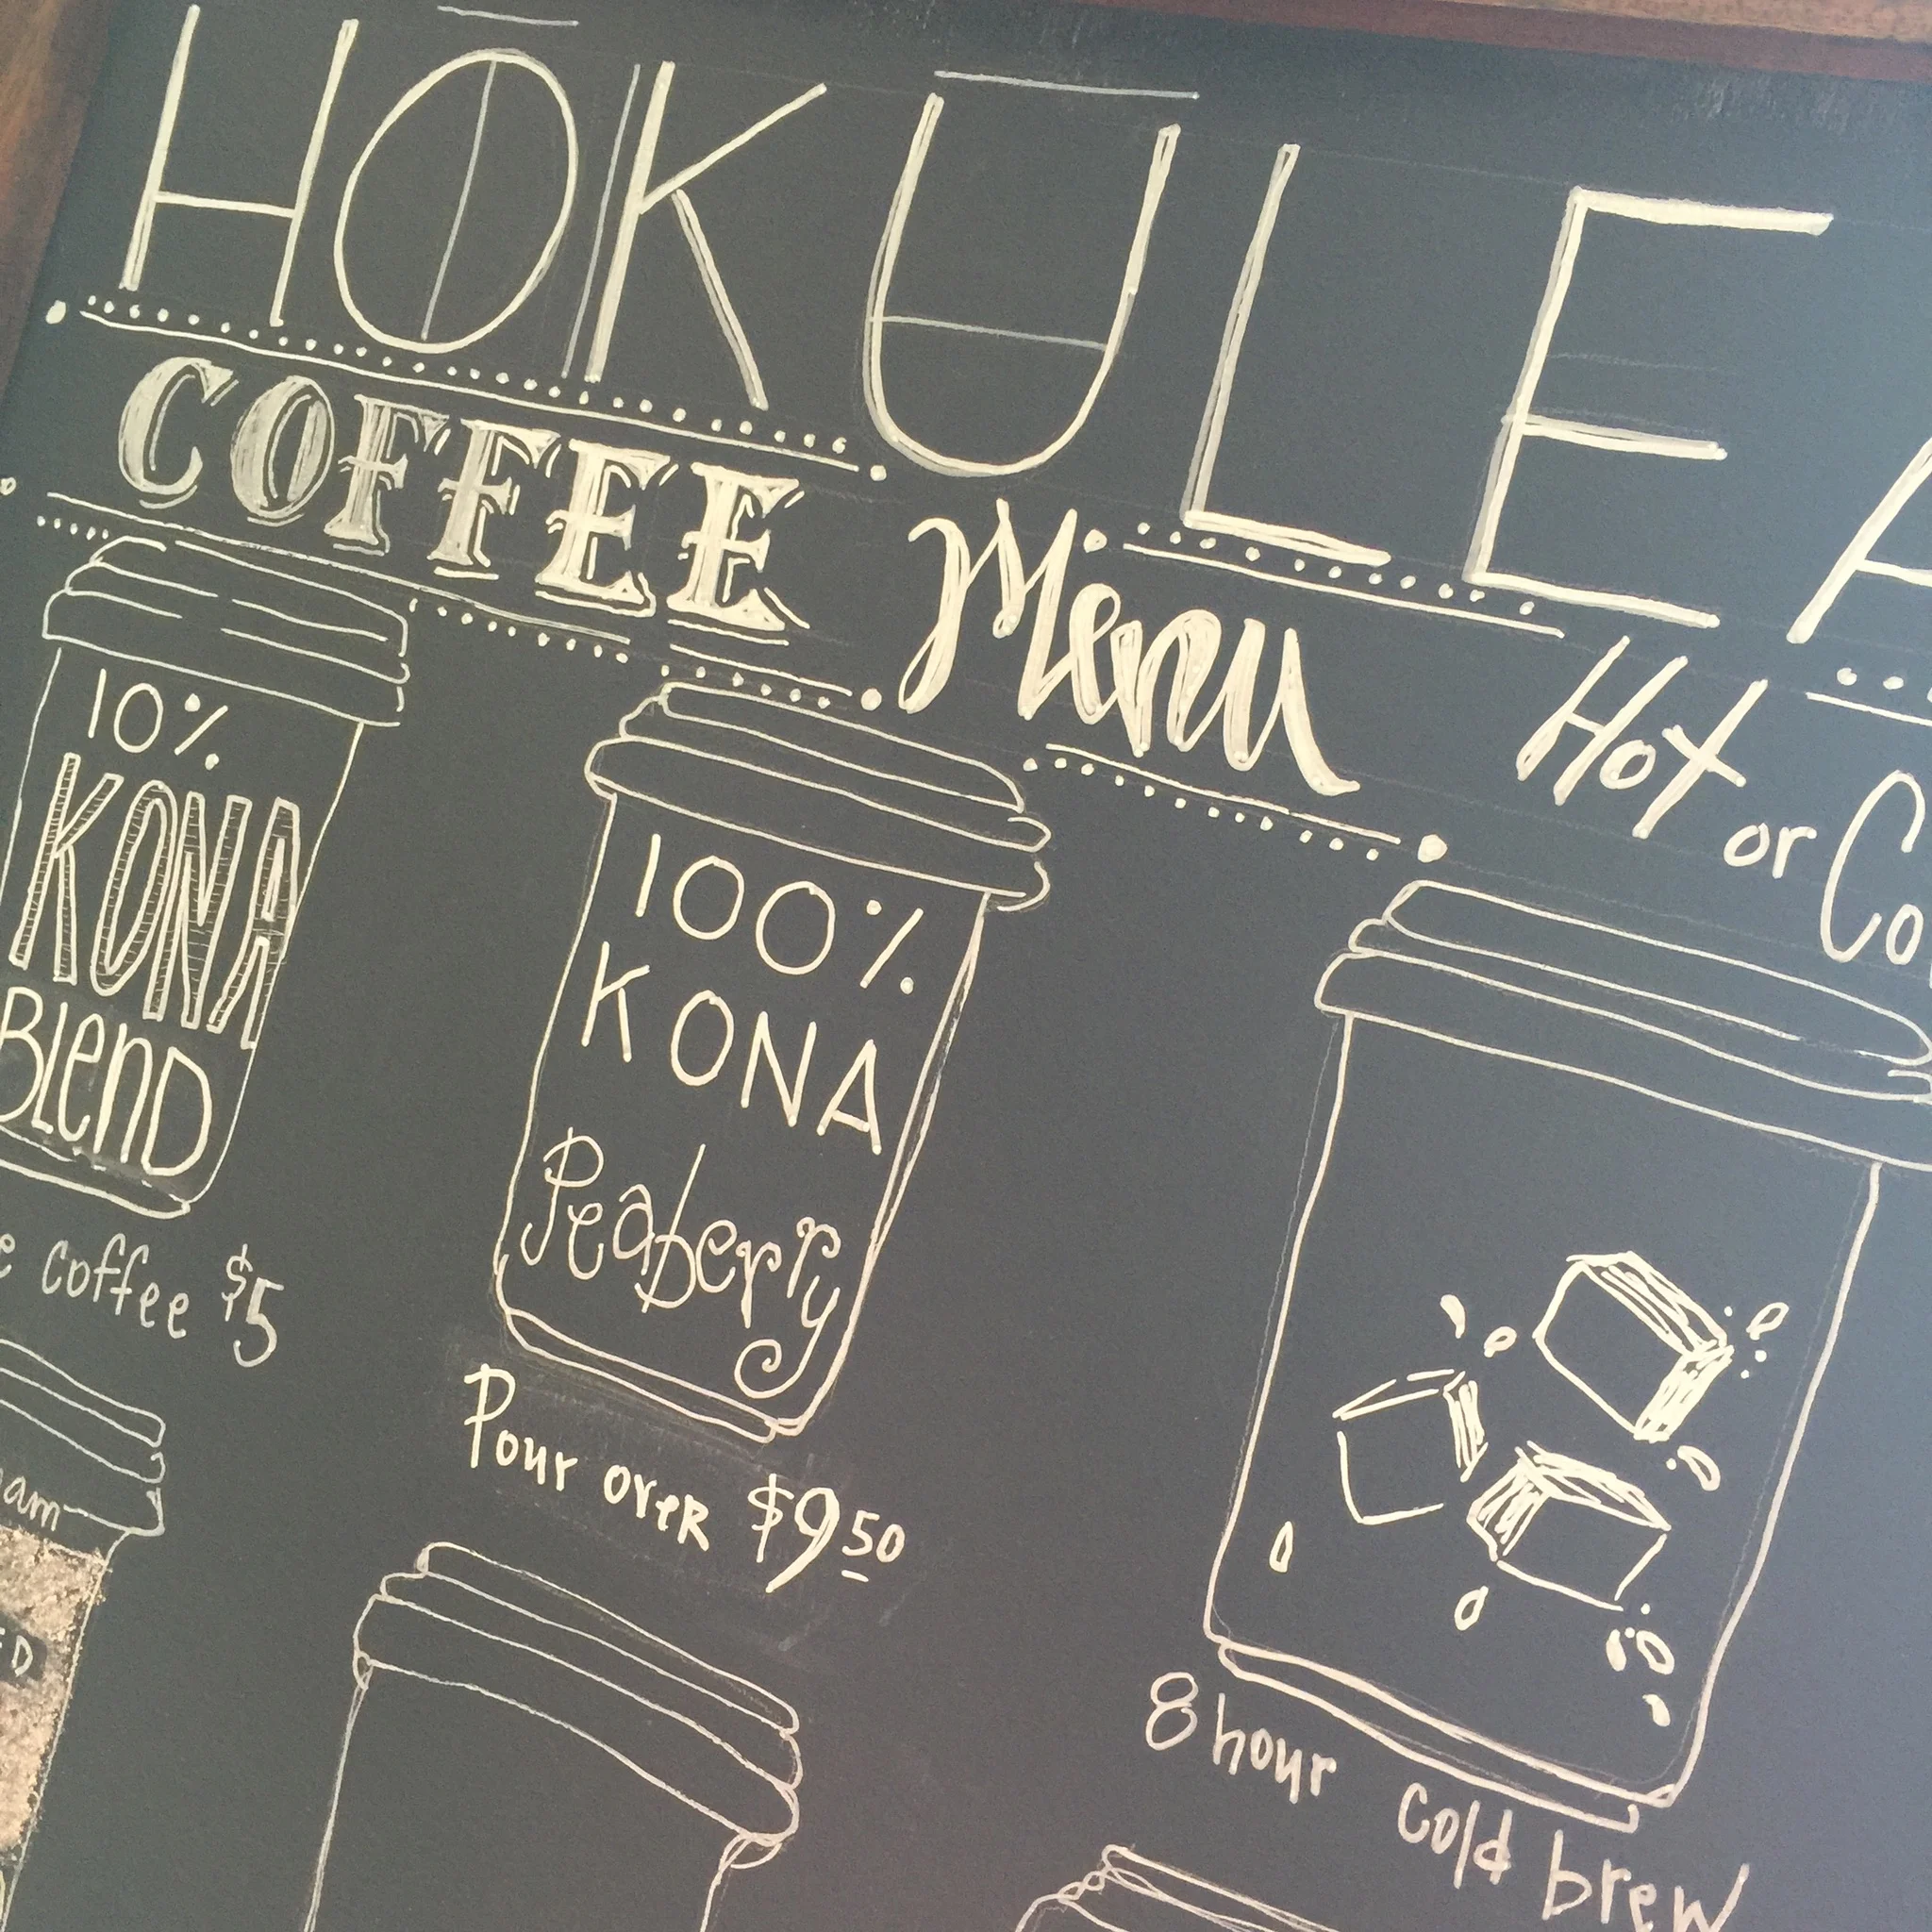 HŌKŪLEA
COFFEE Menu
Hot or Co
10%
KONA
Blend
e coffee $5
100%
KONA
Peaberry
Pour over $9.50
8 hour cold brew
am
ED